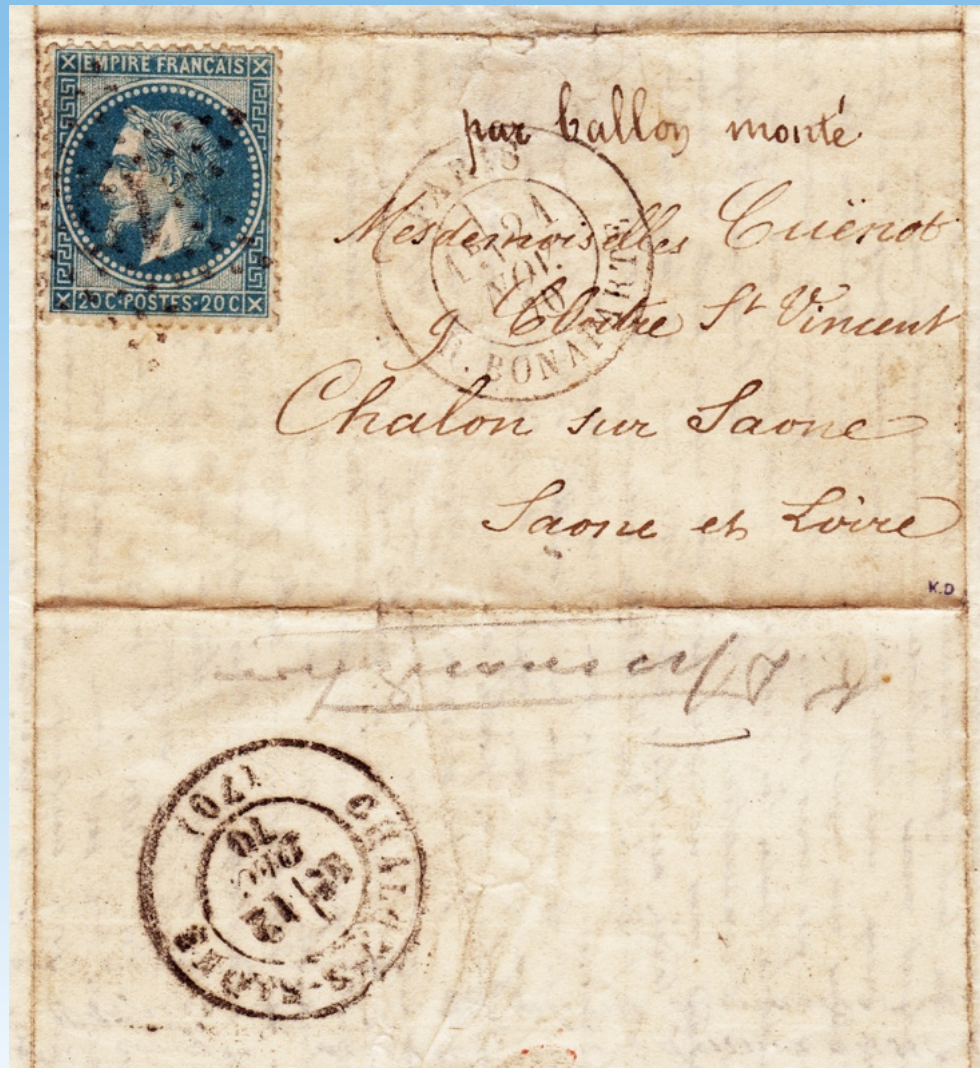 EMPIRE FRANCAIS
20 C·POSTES·20 C
par ballon monté
PARIS
21
NOV.
70
R. BONAPARTE
Mesdemoiselles Cuënot
9 Cloitre St Vincent
Chalon sur Saone
Saone et Loire
K.D
CHALON-S-SAONE
12
DEC
70
(70)